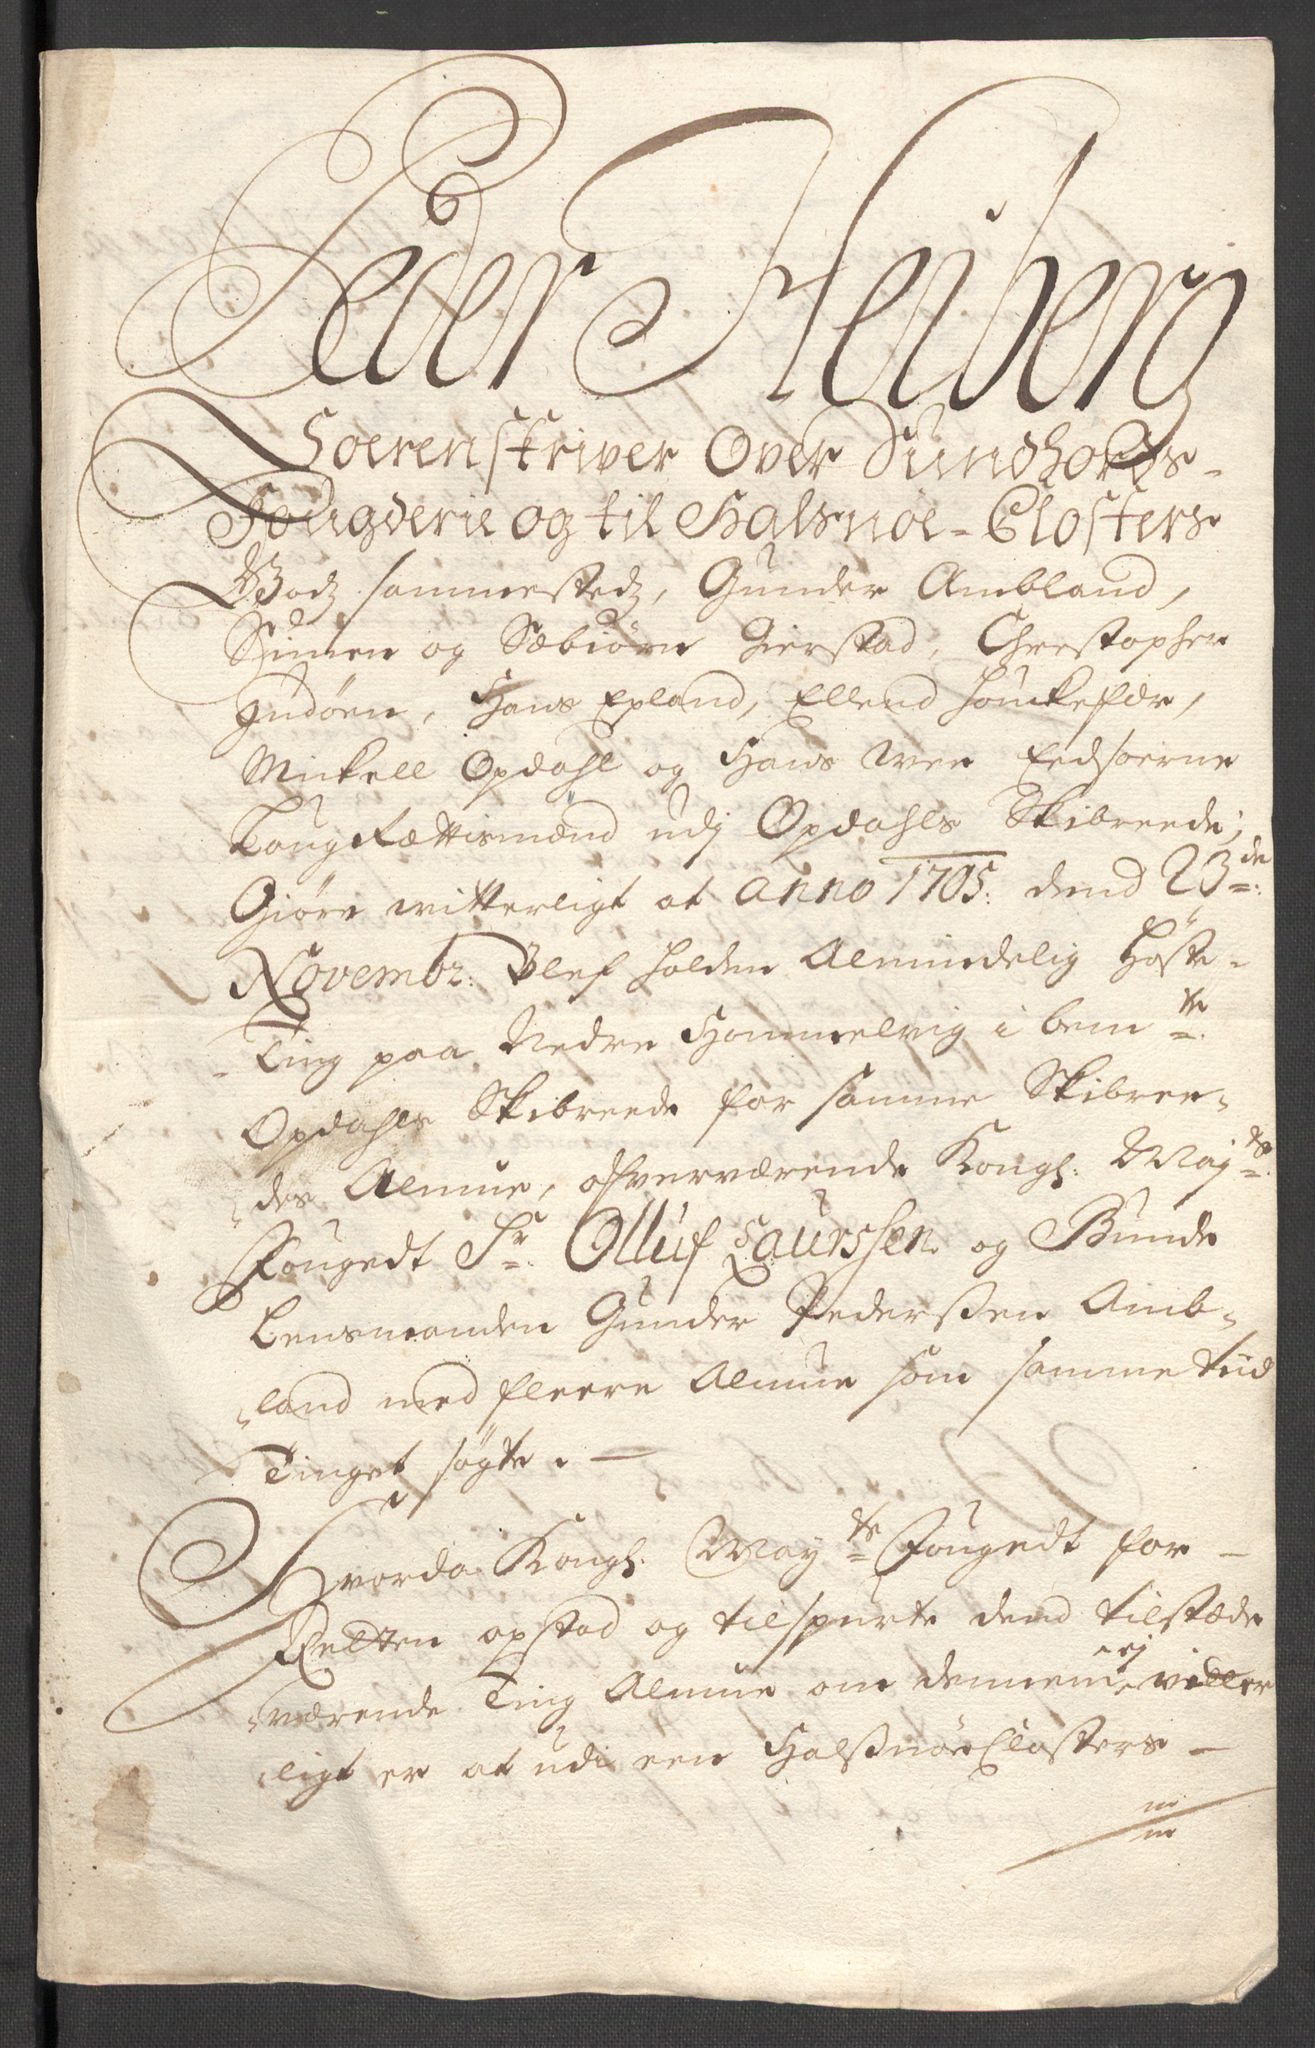 Peder Heiberg
Soerenskriver Over Sundhords-
Fougderie og til Halsnøe-Closters
Godz sammestedz, Gunder Ambland,
Simen og Sæbiørn Gierstad, Christopher
Indøen, Hans Epland, Ellend
Mickell Opdahl og Hans Wee Eedsoerne
Laugrættismend udj Opdahls Skibreede;
Giøre witterligt at Anno 1705: dend 23de:
Novembr: Blef holden Almindelig Høste-
Ting paa Nedre Hammelvig i bemte:
Opdahls Skibreede for samme Skibree-
des Almue, ofververende Kongl: Mayts:
Fougedt Sr: Olluf Laurssen og Bunde
Lensmanden Gunder Pederssen Amb-
land med fleere Almue som samme tiid
Tinget søgte. —
Hvorda Kongl: Mayts: Fougedt for —
Retten opstod og tilspurte dend tilstæde
værende Ting Almue om dennem ej vitter
ligt er at udi een Halssnøe Closters —